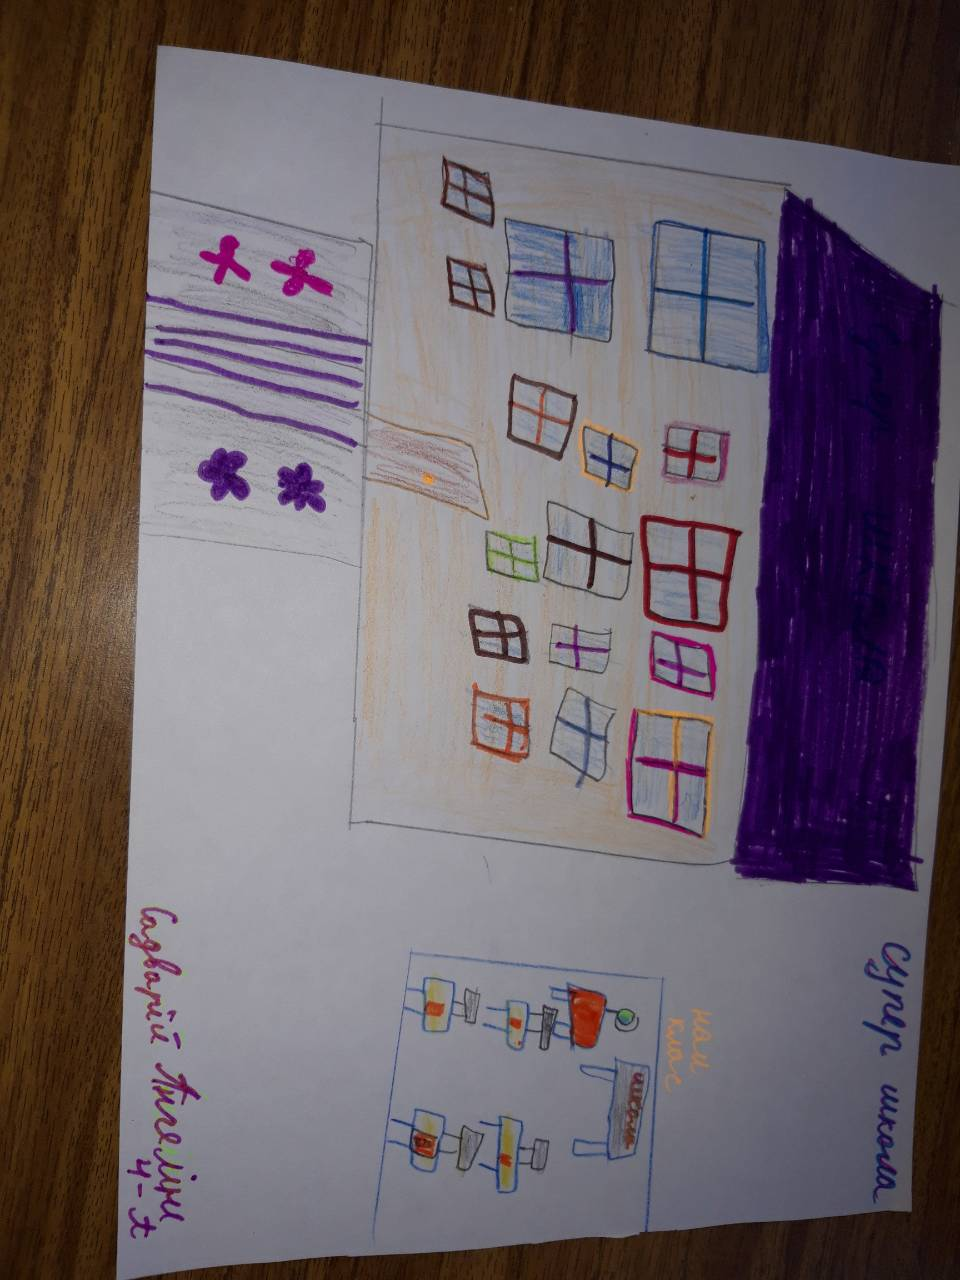 Супер школа
супер школа
наш
клас
школа
Садварій Ангеліни
4-А